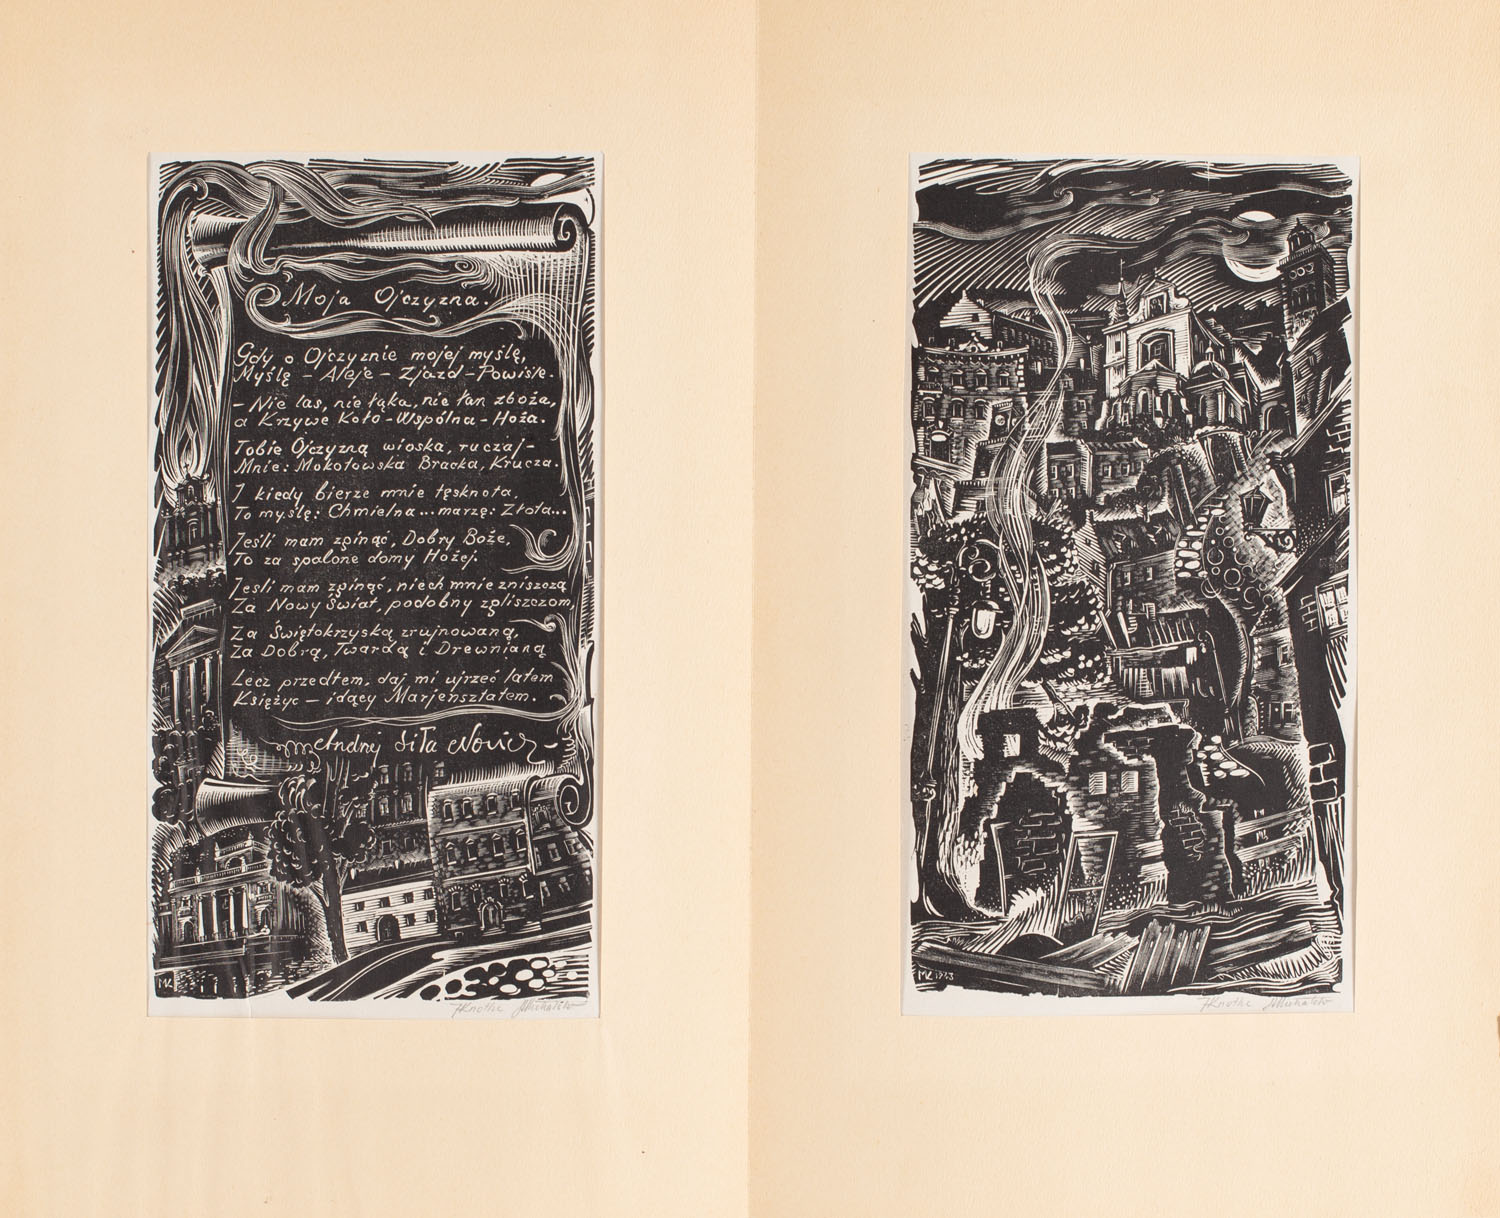 Moja Ojczyzna.
Gdy o Ojczyznie mojej myślę,
Myślę – Aleje – Zjazd – Powiśle.
– Nie las, nie łąka, nie łan zboża,
a Krzywe Koło – Wspólna – Hoża.
Tobie Ojczyzną wioska, ruczaj –
Mnie: Mokotowska Bracka, Krucza.
I kiedy bierze mnie tęsknota,
To myślę: Chmielna... marzę: Złota...
Jeśli mam zginąć, Dobry Boże,
To za spalone domy Hożej.
Jeśli mam zginąć, niech mnie zniszczą
Za Nowy Świat, podobny zgliszczom,
Za Świętokrzyską zrujnowaną,
Za Dobrą, Twardą i Drewnianą
Lecz przedtem, daj mi ujrzeć latem
Księżyc – idący Marjensztatem.
Andrzej Siła Nowicz –
MK
JKnothe
MK 1943
JKnothe